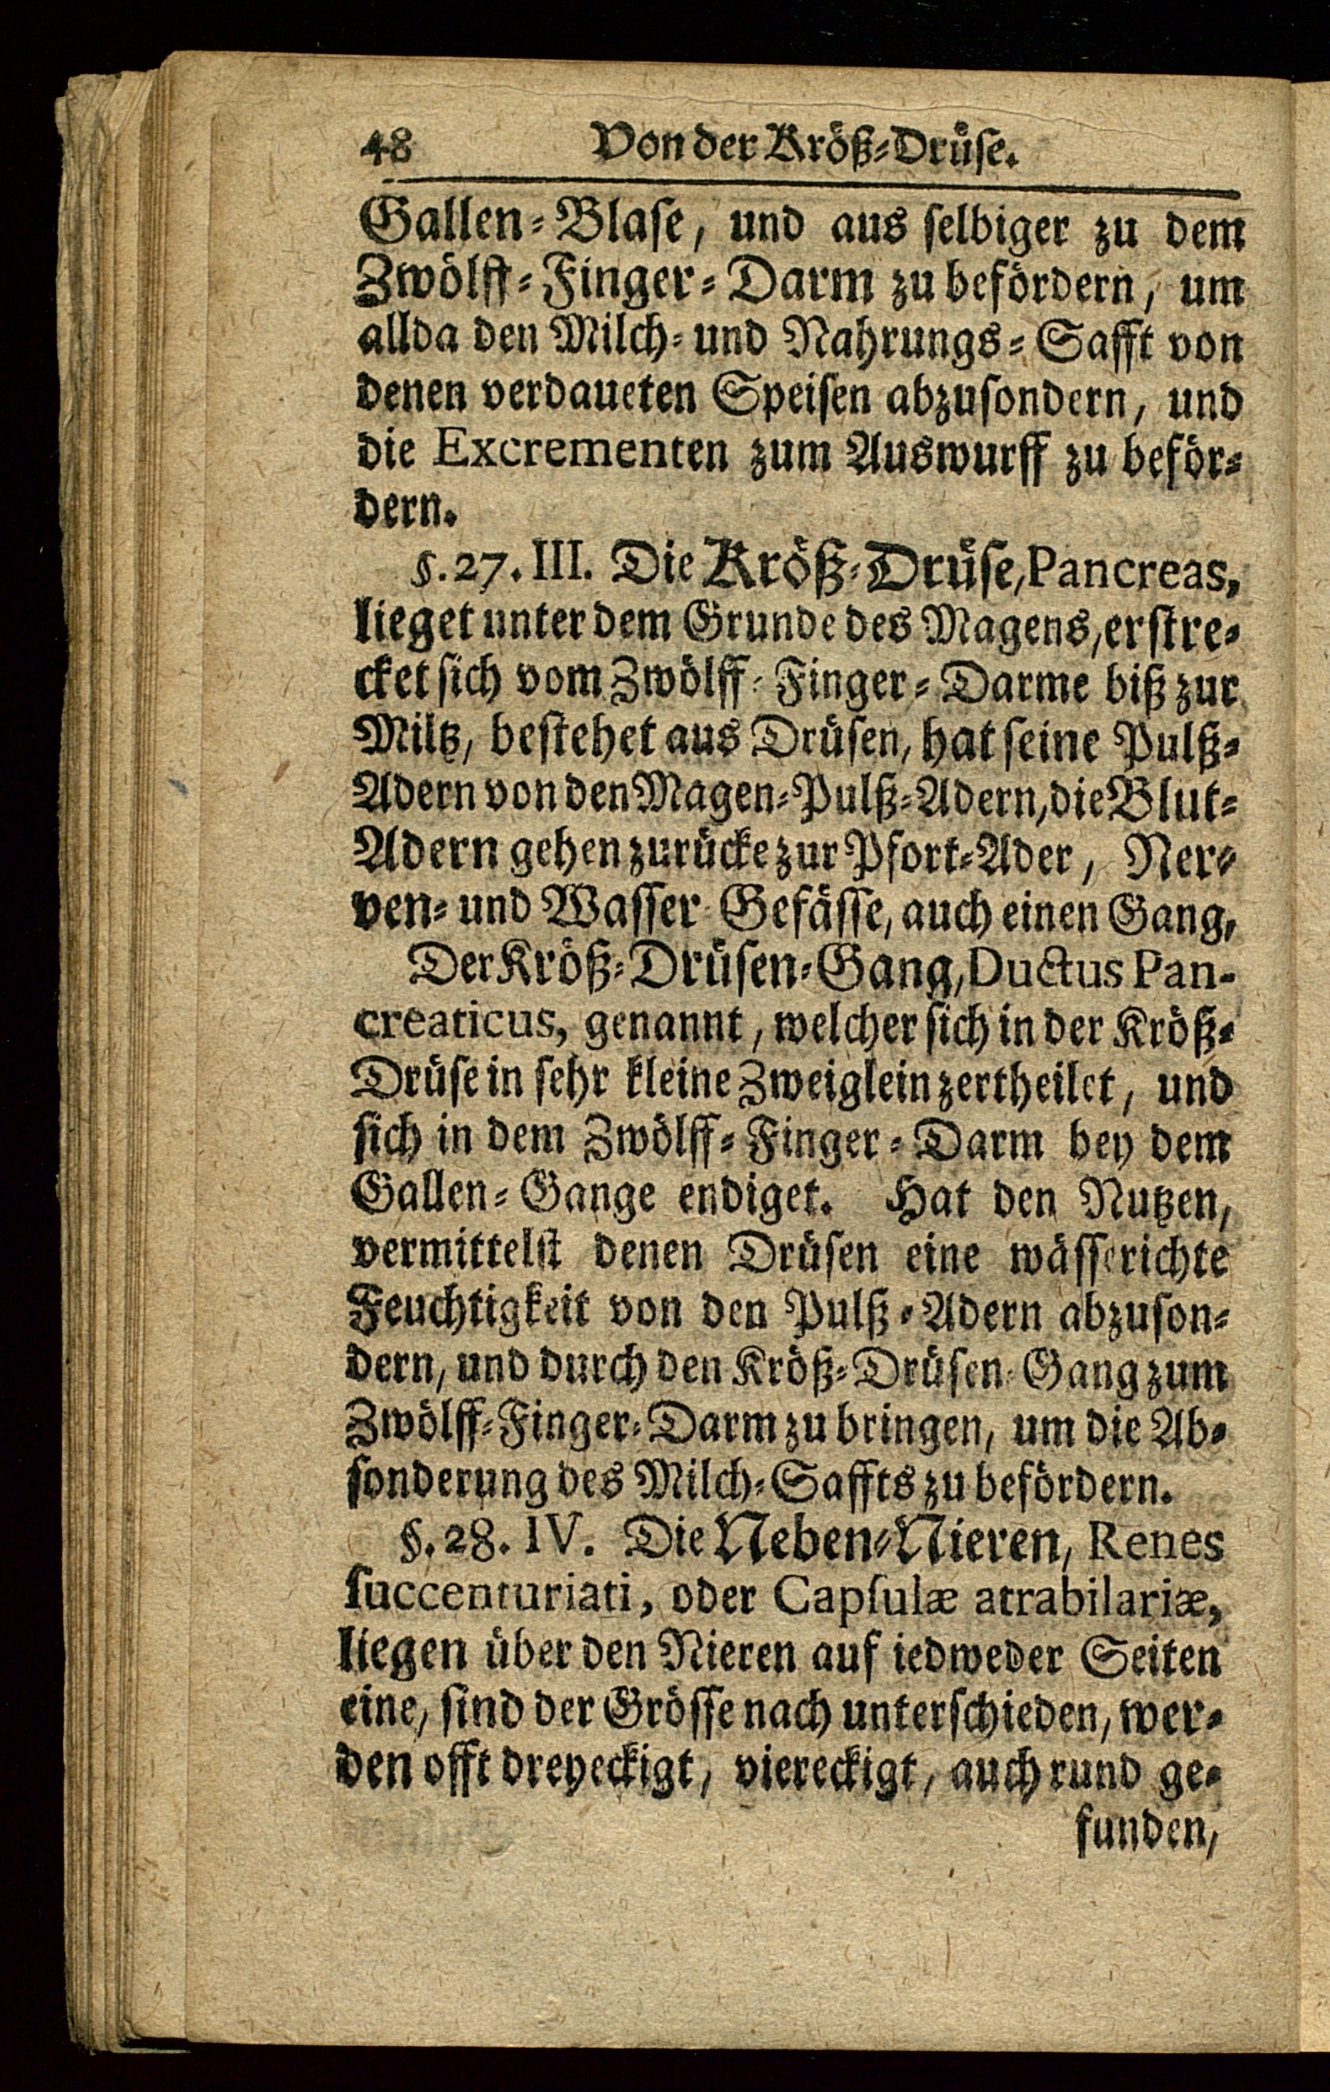 48 Von der Kröß-Drüse.
Gallen-Blase, und aus selbiger zu dem
Zwölff-Finger-Darm zu befördern, um
allda den Milch- und Nahrungs-Safft von
denen verdaueten Speisen abzusondern, und
die Excrementen zum Auswurff zu beför-
dern.
§. 27. III. Die Kröß-Drüse, Pancreas,
lieget unter dem Grunde des Magens, erstre-
cket sich vom Zwölff-Finger-Darme biß zur
Miltz, bestehet aus Drüsen, hat seine Pulß-
Adern von den Magen-Pulß-Adern, die Blut-
Adern gehen zurücke zur Pfort-Ader, Ner-
ven- und Wasser-Gefässe, auch einen Gang,
Der Kröß-Drüsen-Gang, Ductus Pan-
creaticus, genannt, welcher sich in der Kröß-
Drüse in sehr kleine Zweiglein zertheilet, und
sich in dem Zwölff-Finger-Darm bey dem
Gallen-Gange endiget. Hat den Nutzen,
vermittelst denen Drüsen eine wässerichte
Feuchtigkeit von den Pulß-Adern abzuson-
dern, und durch den Kröß-Drüsen-Gang zum
Zwölff-Finger-Darm zu bringen, um die Ab-
sonderung des Milch-Saffts zu befördern.
§. 28. IV. Die Neben-Nieren, Renes
succenturiati, oder Capsulæ atrabilariæ,
liegen über den Nieren auf iedweder Seiten
eine, sind der Grösse nach unterschieden, wer-
den offt dreyeckigt, viereckigt, auch rund ge-
funden,